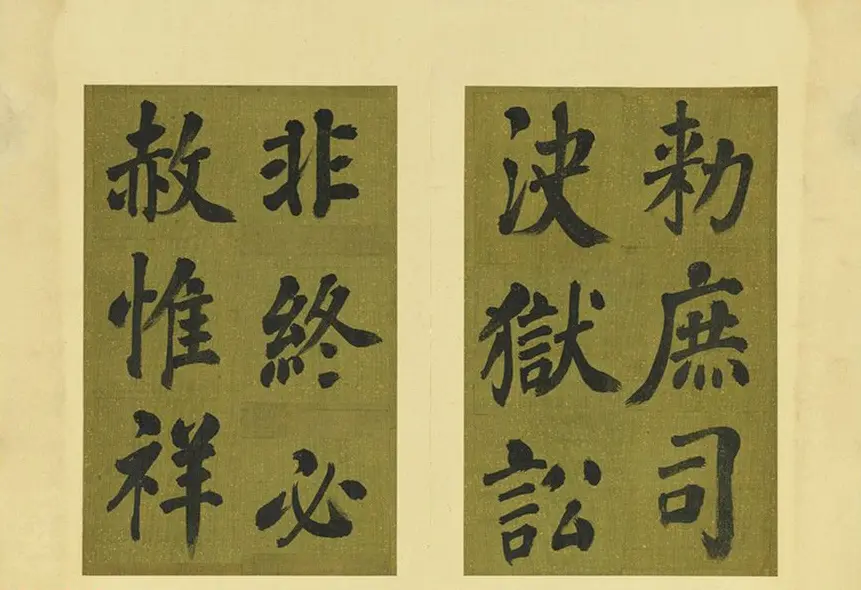 勑庶司
決獄訟
非終必
赦惟祥